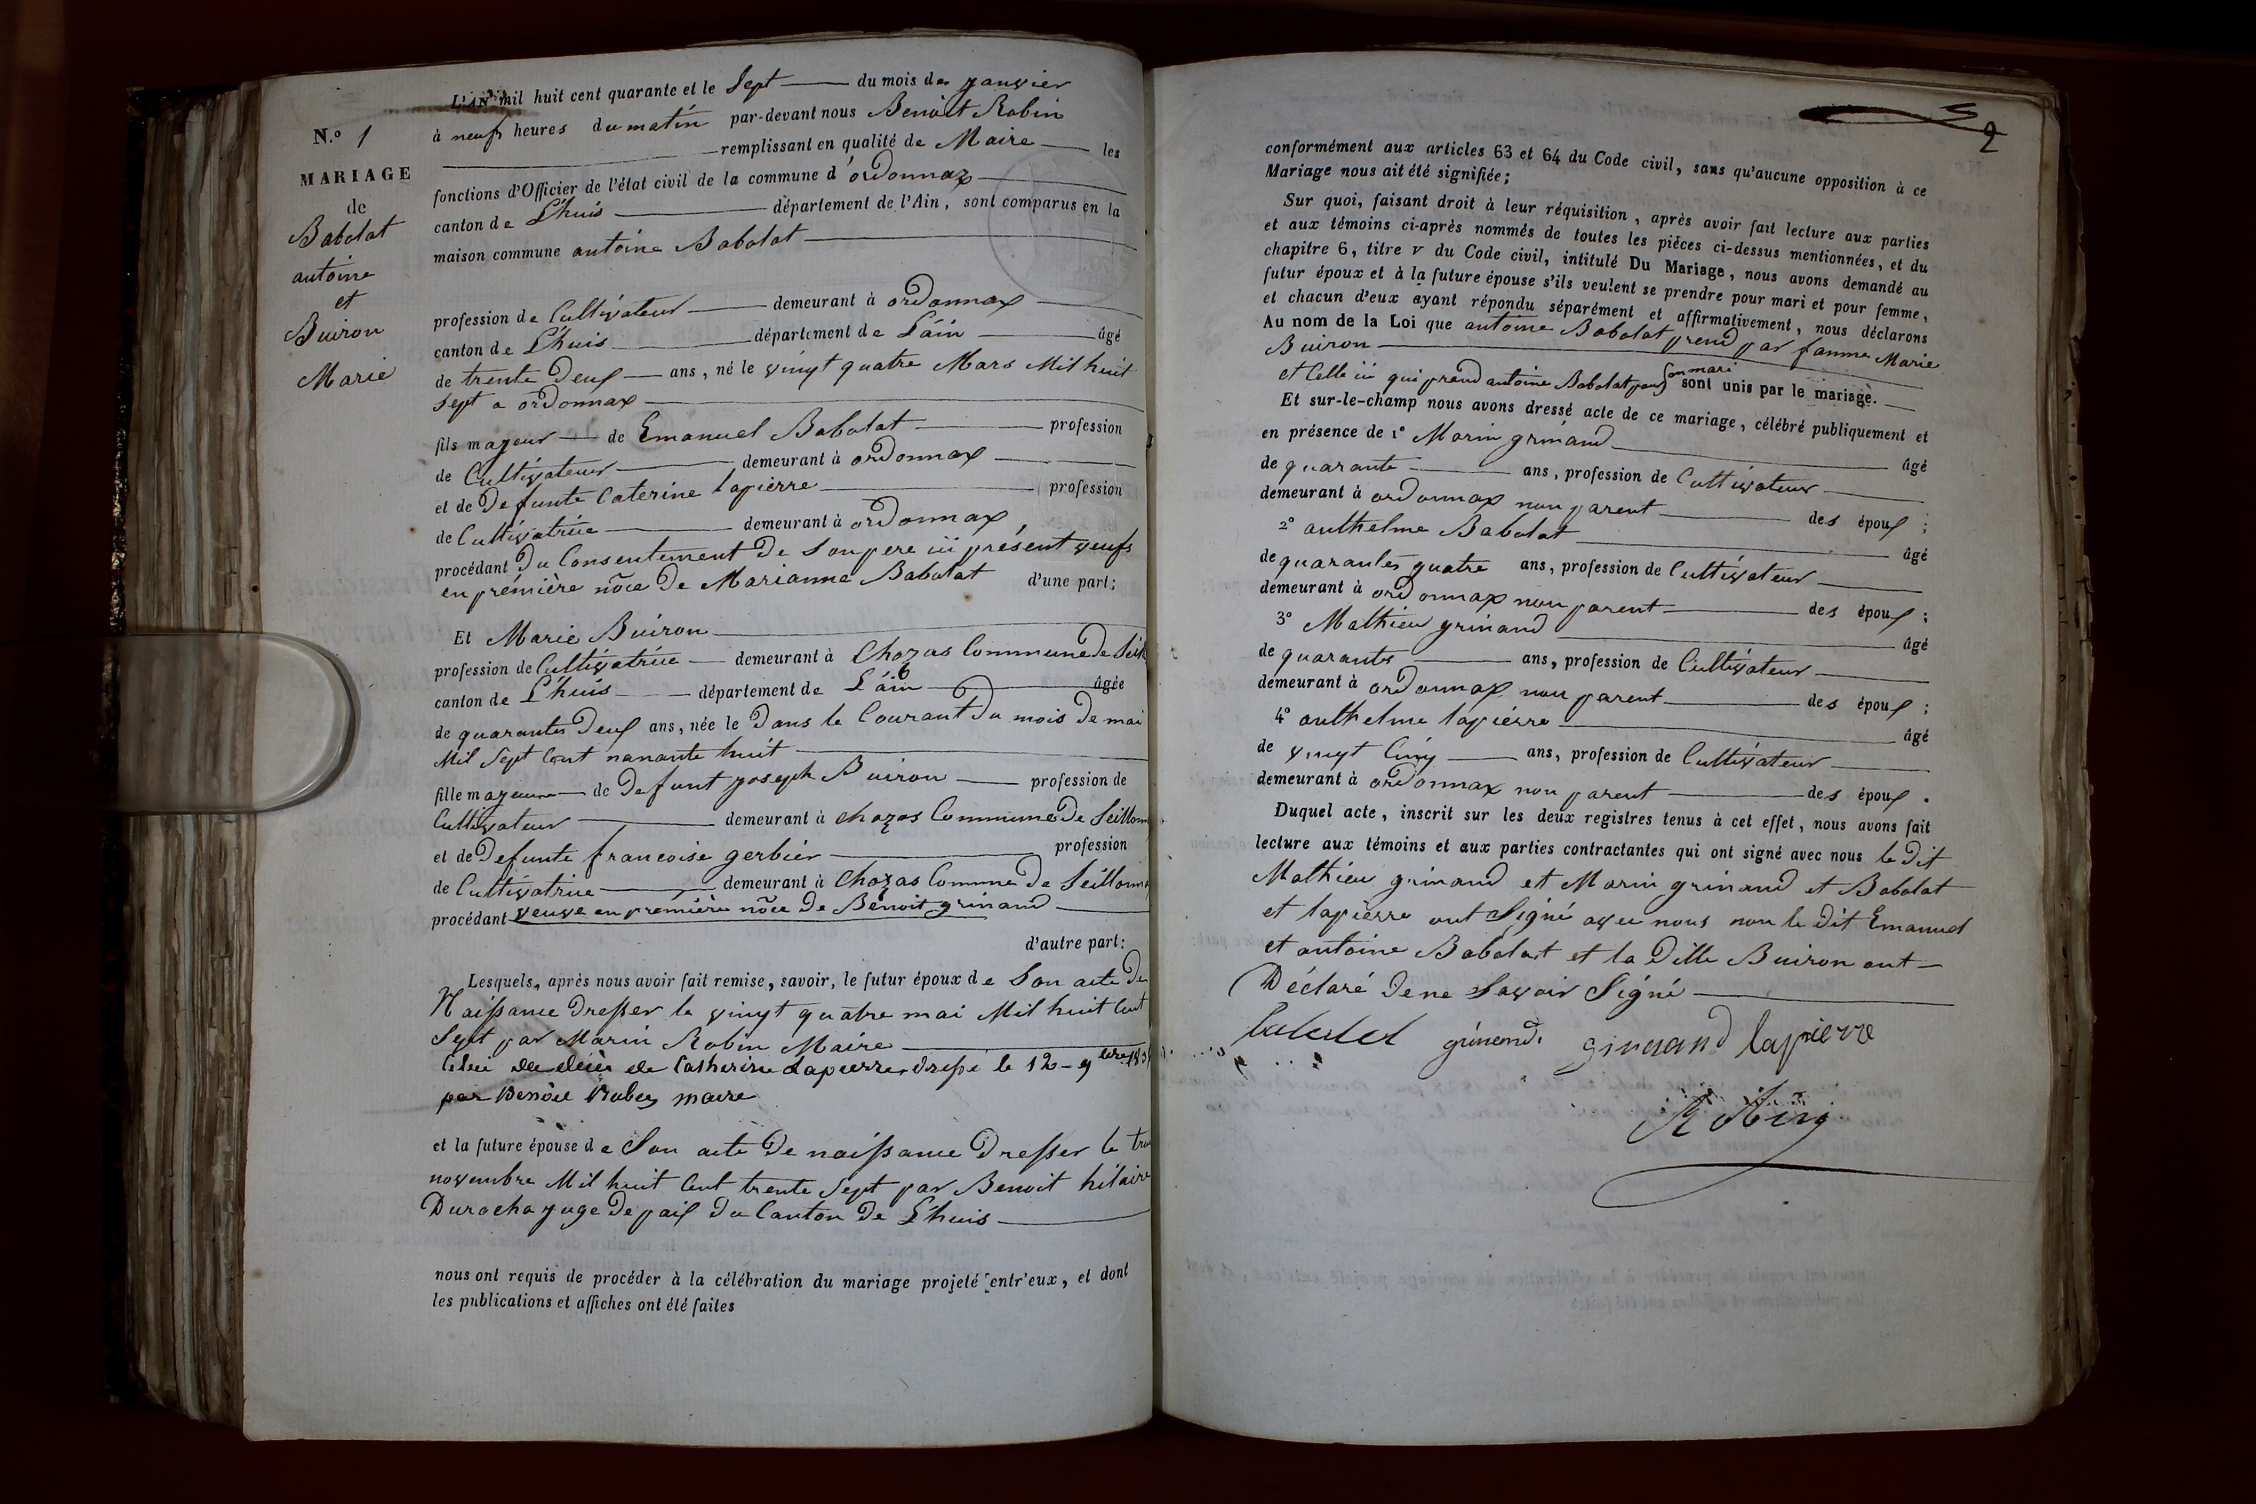 N.º 1
MARIAGE
de
Babolat
antoine
et
Buiron
Marie
L'AN mil huit cent quarante et le Sept du mois de janvier
à neufs heures du matin par-devant nous Benoit Robin
remplissant en qualité de Maire les
fonctions d'Officier de l'état civil de la commune d'ordonnaz
canton de L'huis département de l'Ain, sont comparus en la
maison commune antoine Babolat
profession de Cultivateur demeurant à ordonnax
canton de L'huis département de L'ain âgé
de trente Deux ans, né le vingt quatre Mars Mil huit
sept a ordonnax
fils majeur de Emanuel Babolat profession
de Cultivateur demeurant à ordonnax
et de Defunte Caterine lapierre profession
de Cultivatrice demeurant à ordonnax
procédant Du Consentement De Son pere ici présent veufs
en première nôce De Marianne Babolat d'une part;
Et Marie Buiron
profession de Cultivatrice demeurant à Chozas Commune De
canton de L'huis département de L'ain âgée
de quarantes Deux ans, née le Dans le Courant Du mois De mai
Mil Sept Cent nonante huit
fille majeure de Defunt joseph Buiron profession de
Cultivateur demeurant à chozas Commune De Seillonn
et de Defunte francoise gerbier profession
de Cultivatrice demeurant à Chozas Comune De Seillonn
procédant veuve en première nôce De Benoit grinand
d'autre part:
Lesquels, après nous avoir fait remise, savoir, le futur époux de Son acte De
Naissance Dresser le vingt quatre mai Mil huit Cent
Sept par Marin Robin Maire
Celui de décès de Catherine Lapierre dressé le 12 9bre
par Benoit Robin maire
et la future épouse de Son acte De naissance Dresser le
novembre Mil huit Cent trente Sept par Benoit hilaire
Durocha juge De paix Du Canton De L'huis
nous ont requis de procéder à la célébration du mariage projeté entr'eux, et dont
les publications et affiches ont été faites
2
conformément aux articles 63 et 64 du Code civil, sans qu'aucune opposition à ce
Mariage nous ait été signifiée;
Sur quoi, faisant droit à leur réquisition, après avoir fait lecture aux parties
et aux témoins ci-après nommés de toutes les pièces ci-dessus mentionnées, et du
chapitre 6, titre v du Code civil, intitulé Du Mariage, nous avons demandé au
futur époux et à la future épouse s'ils veulent se prendre pour mari et pour femme,
et chacun d'eux ayant répondu séparément et affirmativement, nous déclarons
Au nom de la Loi que antoine Babolat prend par famme Marie
Buiron
et Celle ici qui prend antoine Babolat pour Son mari sont unis par le mariage.
Et sur-le-champ nous avons dressé acte de ce mariage, célébré publiquement et
en présence de 1º Marin grinand âgé
de quarante ans, profession de Cultivateur
demeurant à ordonnax non parent des époux;
2º anthelme Babolat âgé
de quarantes quatre ans, profession de Cultivateur
demeurant à ordonnax non parent des époux;
3º Mathieu grinand âgé
de quarantes ans, profession de Cultivateur
demeurant à ordonnax non parent des époux;
4º anthelme lapierre âgé
de vingt Cinq ans, profession de Cultivateur
demeurant à ordonnax non parent des époux.
Duquel acte, inscrit sur les deux registres tenus à cet effet, nous avons fait
lecture aux témoins et aux parties contractantes qui ont signé avec nous le Dit
Mathieu grinand et Marin grinand et Babolat
et lapierre ont Signé avec nous non le Dit Emanuel
et antoine Babolat et la Ditte Buiron ont
Déclaré De ne Savoir Signé
grinand. lapierre
Robin